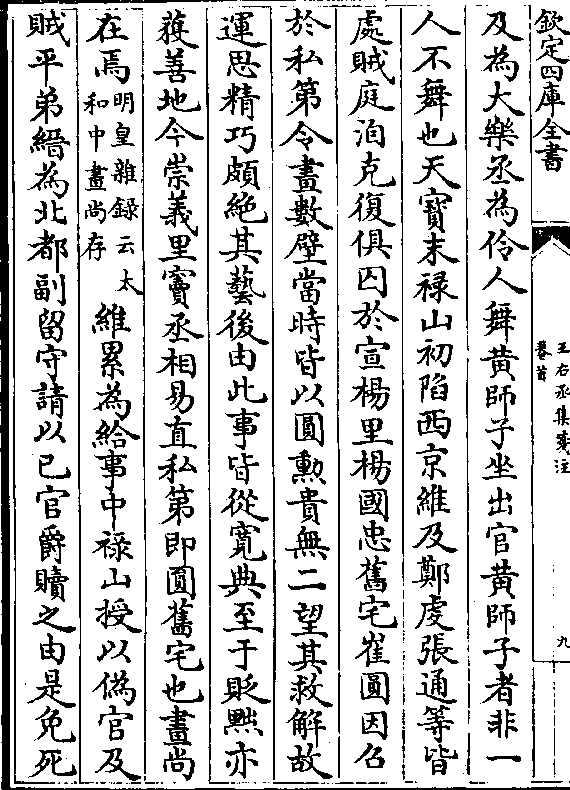 欽定四庫全書
王右丞集箋注
卷首
九
及為大樂丞為伶人舞黄師子坐出官黄師子者非一
人不舞也天寶末禄山初陷西京維及鄭虔張通等皆
處賊庭洎克復俱囚於宣楊里楊國忠舊宅崔圓因召
於私第令畫數壁當時皆以圓勲貴無二望其救解故
運思精巧頗絶其藝後由此事皆從寛典至于貶黜亦
獲善地今崇義里竇丞相易直私第即圓舊宅也畫尚
在焉明皇雜録云太
和中畫尚存
維累為給事中禄山授以偽官及
賊平弟縉為北都副留守請以已官爵贖之由是免死